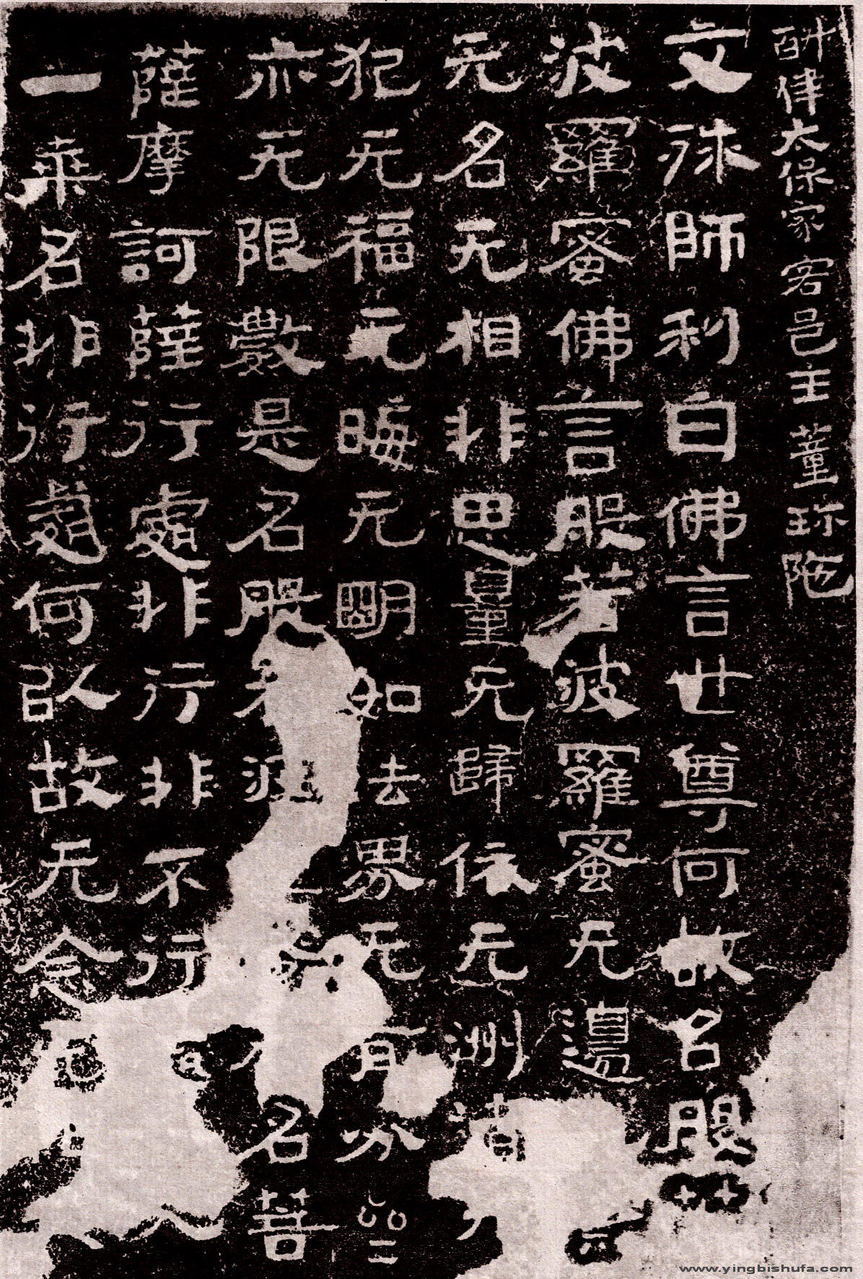 斛律太保家客邑主董珍陀
文殊師利白佛言世尊何故名般
波羅蜜佛言般若波羅蜜无邊
无名无相非思量无歸依无洲渚
犯无福无晦无明如法界无有分齊
亦无限數是名般若波 名菩
薩摩訶薩行處非行非不行
一乘名非行處何以故无念
www.yingbishufa.com